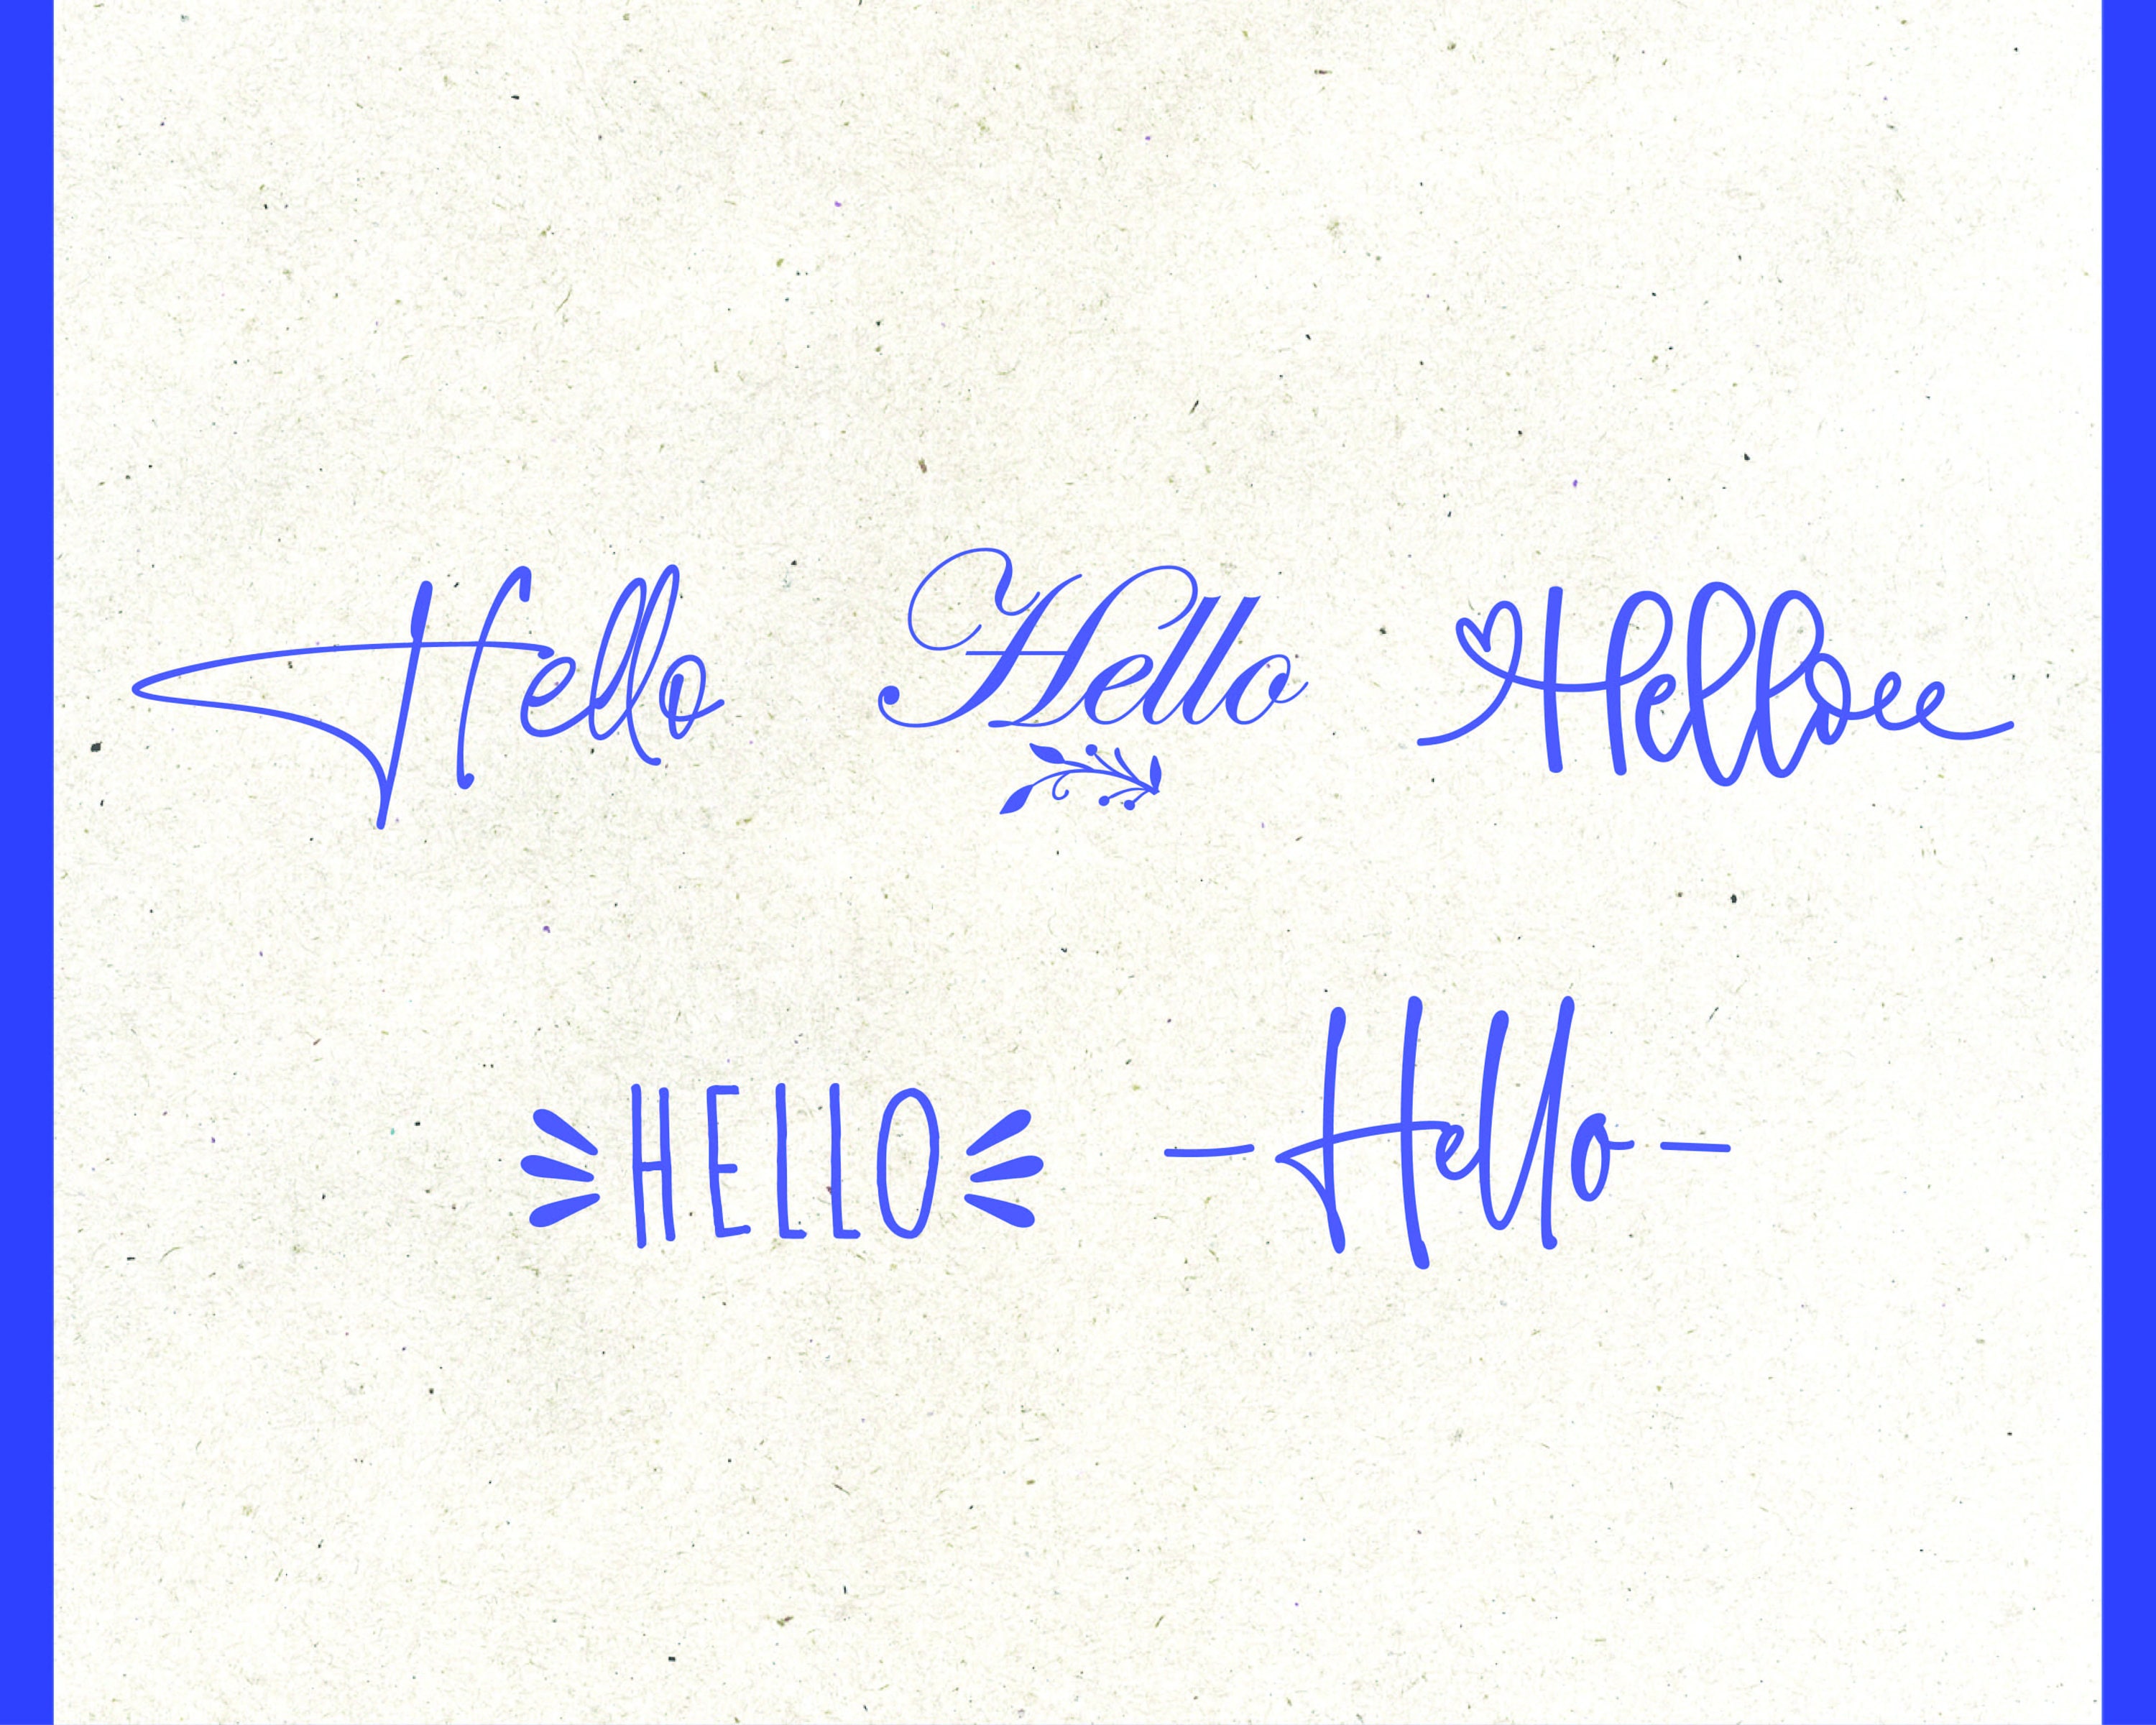 Hello Hello Hello
HELLO Hello